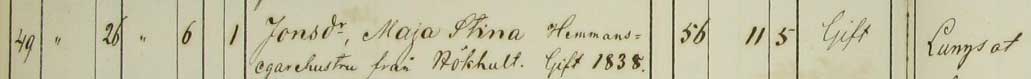 49 " 26 " 6 1 Jonsdr, Maja Stina Hemmans= 56 11 5 Gift Lungsot
egarehustru från Stökhult. Gift 1838.